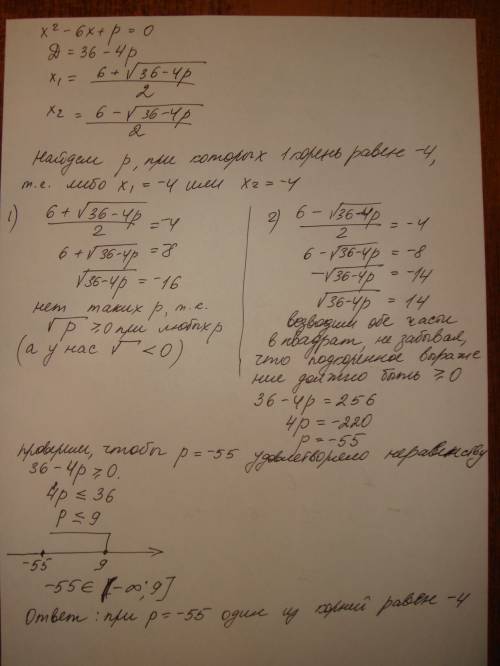 x² - 6x + p = 0
Д = 36 - 4p
x₁ = (6 + √(36-4p))/2
x₂ = (6 - √(36-4p))/2
Найдем p, при которых 1 корень равен -4,
т.е. либо x₁ = -4 или x₂ = -4
1) (6 + √(36-4p))/2 = -4
6 + √(36-4p) = -8
√(36-4p) = -16
нет таких p, т.е.
√p ≥ 0 при любых p
(а у нас √ < 0)
2) (6 - √(36-4p))/2 = -4
6 - √(36-4p) = -8
-√(36-4p) = -14
√(36-4p) = 14
возводим обе части
в квадрат, не забывая,
что подкоренное выраже
ние должно быть ≥ 0
36 - 4p = 256
4p = -220
p = -55
проверим, чтобы p = -55 удовлетворяло неравенству
36 - 4p ≥ 0.
4p ≤ 36
p ≤ 9
-55 9
-55 ∈ [-∞; 9]
Ответ: при p = -55 один из корней равен -4